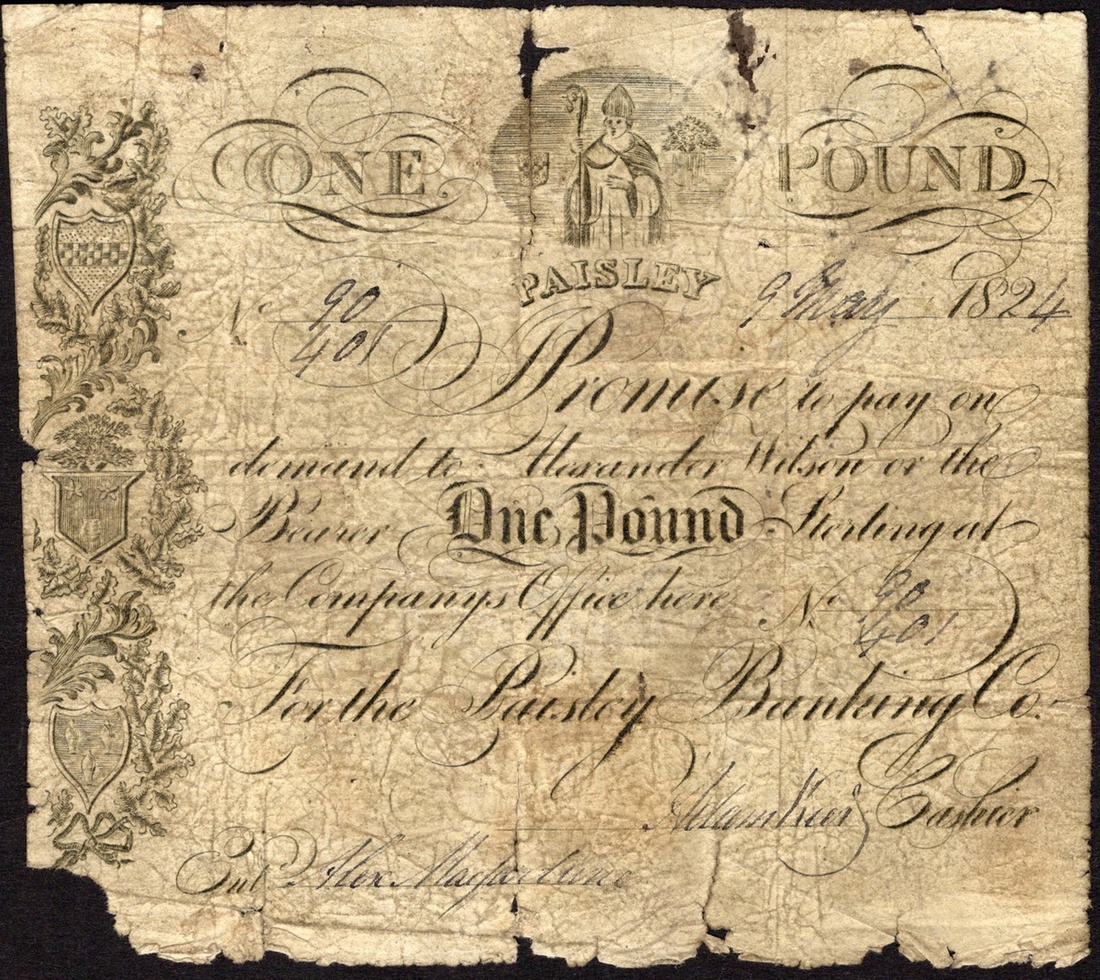 ONE POUND
PAISLEY
No 90/401 9 May 1824
I Promise to pay on
demand to Alexander Wilson or the
Bearer One Pound Sterling at
the Companys Office here No 90/401
For the Paisley Banking Co.
Adam Keir Cashier
Ent Alex Macfarlane